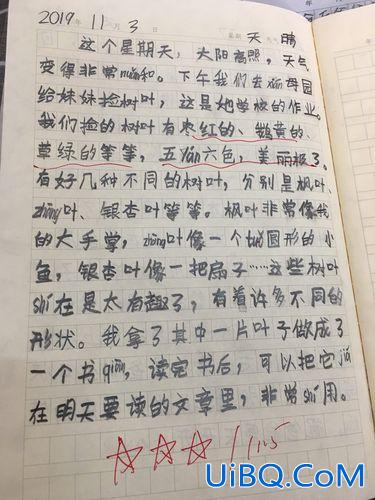 2019年11月3 星期 天 天气 晴
这个星期天，大阳高照，天气
变得非常nuǎn和。下午我们去 母园
给妹妹捡树叶，这是她学校的作业。
我们捡的树叶有枣红的、鹅黄的、
草绿的等等，五yán六色，美丽极了。
有好几种不同的树叶，分别是枫叶、
zhāng叶、银杏叶等等。枫叶非常像我
的大手掌，zhāng叶像一个tuǒ圆形的小
鱼，银杏叶像一把扇子……这些树叶
shí在是太有趣了，有着许多不同的
形状。我拿了其中一片叶子做成了
一个书qiān，读完书后，可以把它jiā
在明天要读的文章里，非常shí用。
☆☆☆ 11.5
UiBQ.CoM